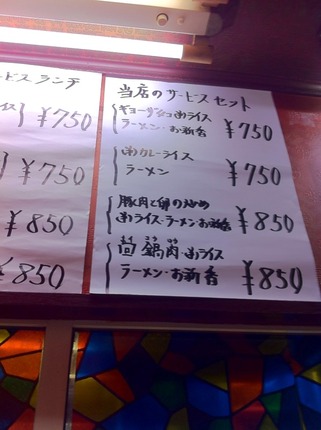 ービスランチ
イス
¥750
¥750
¥850
¥850
当店のサービスセット
ギョーザ2コ・小ライス
ラーメン・お新香
¥750
小カレーライス
ラーメン
¥750
豚肉と卵の炒め
小ライス・ラーメン・お新香
¥850
鍋肉・小ライス
ラーメン・お新香
¥850